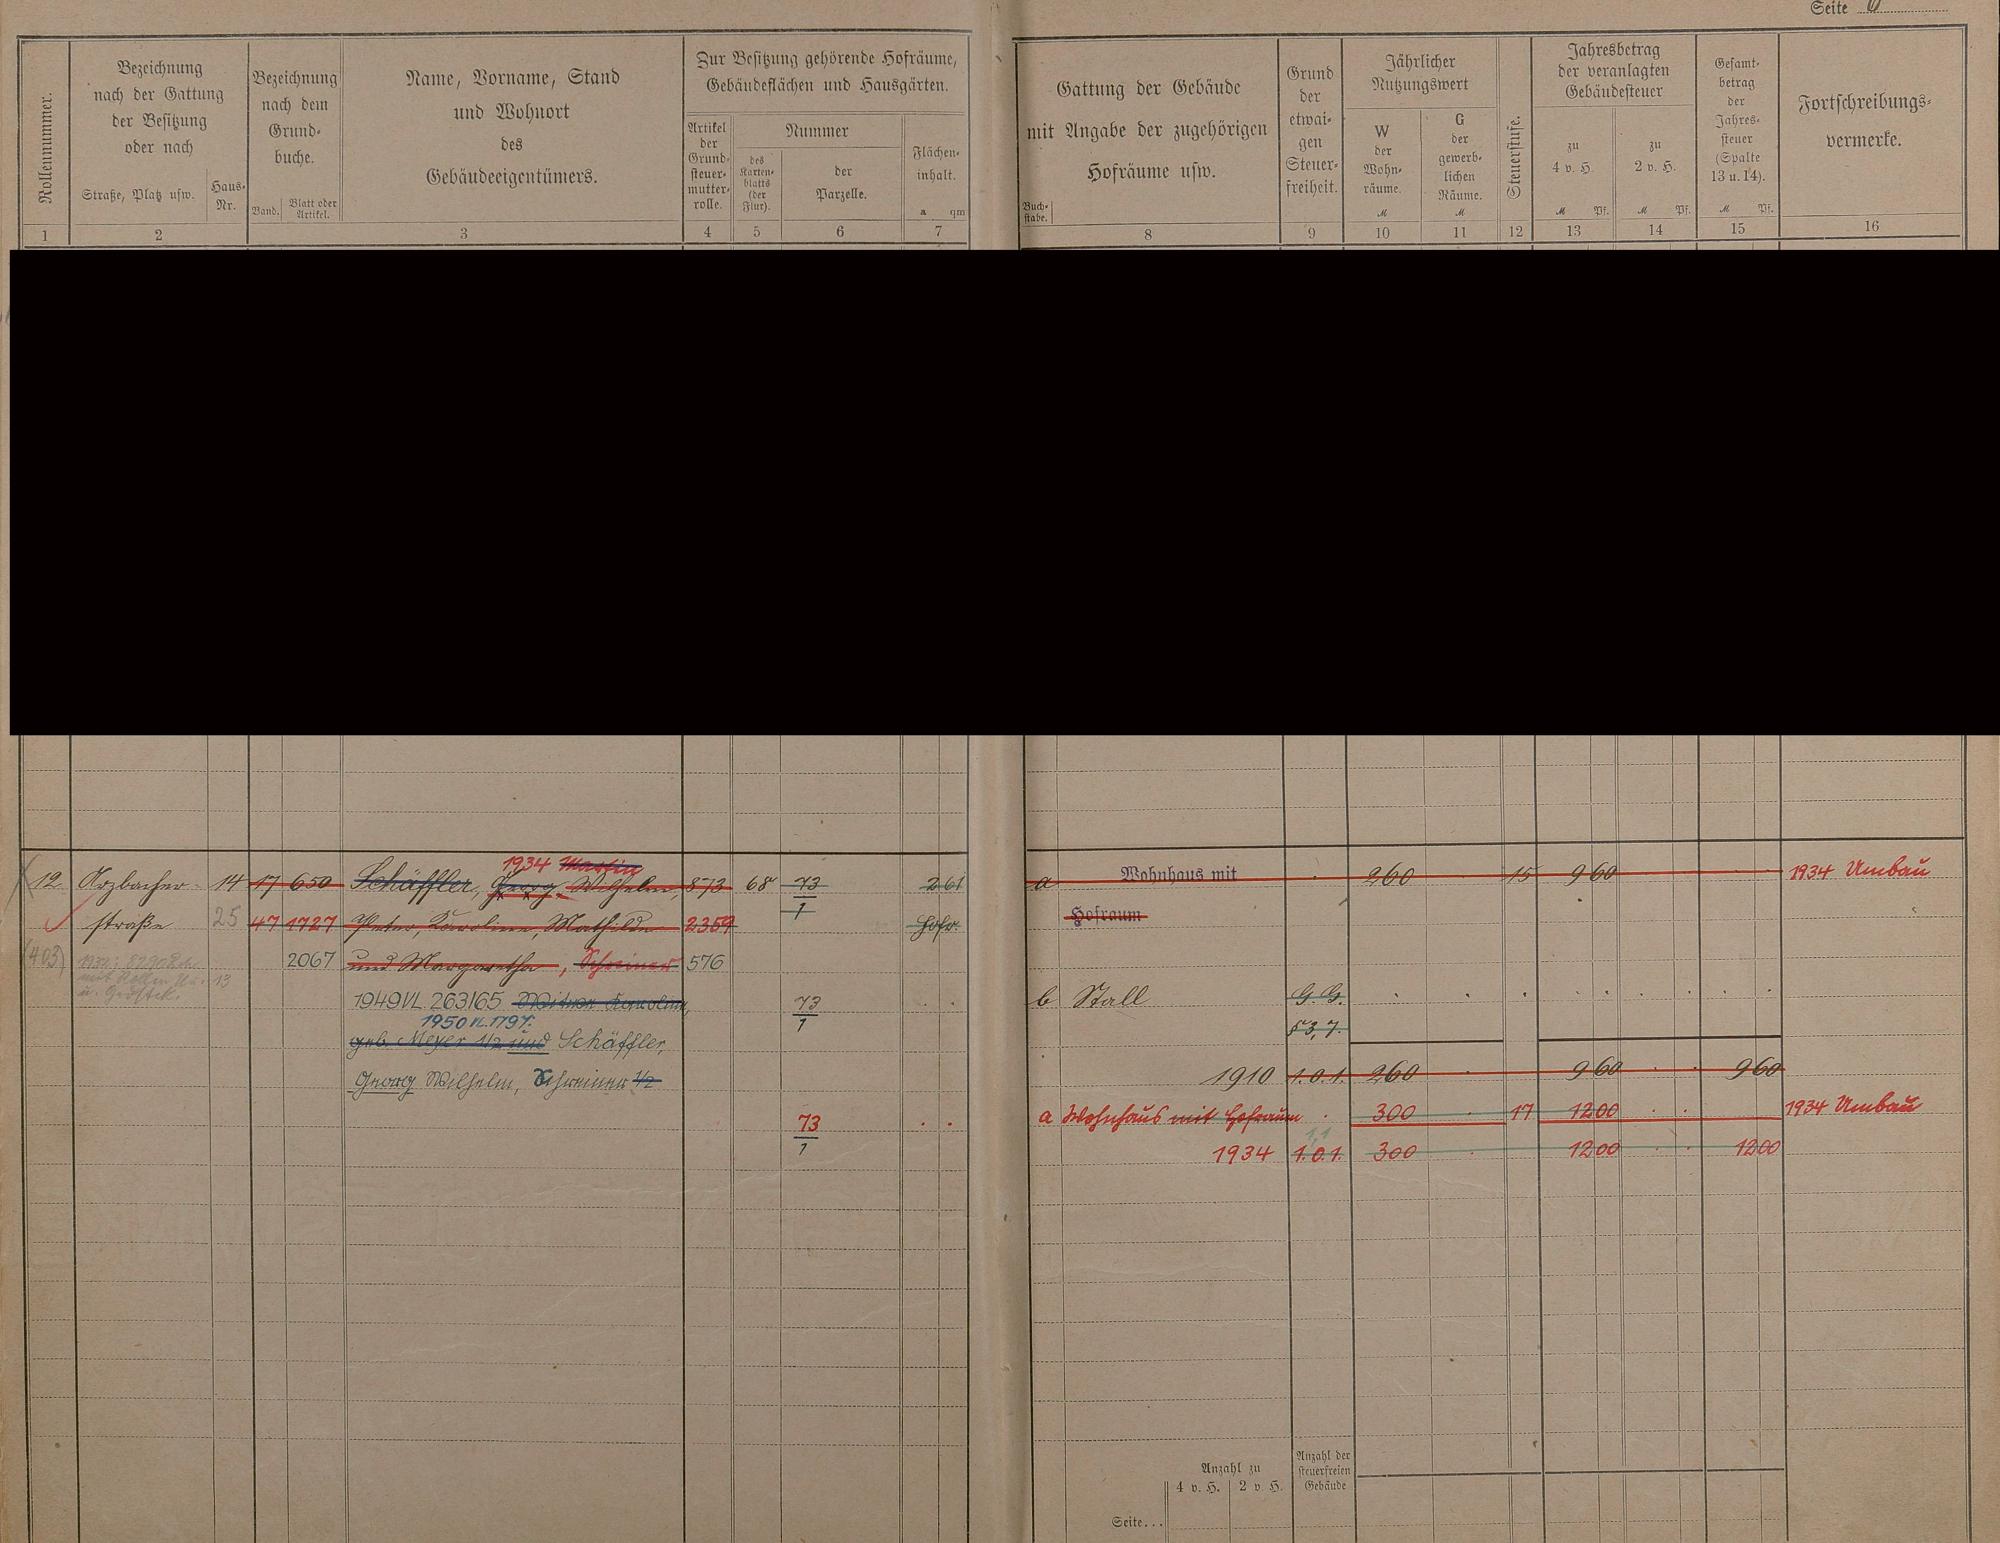 Seite 6
Rollennummer.
Bezeichnung
nach der Gattung
der Besitzung
oder nach
Straße, Platz usw.
Haus-
Nr.
Bezeichnung
nach dem
Grund-
buche.
Band.
Blatt oder
Artikel.
Name, Vorname, Stand
und Wohnort
des
Gebäudeeigentümers.
Zur Besitzung gehörende Hofräume,
Gebäudeflächen und Hausgärten.
Artikel
der
Grund-
steuer-
mutter-
rolle.
Nummer
des
Karten-
blatts
(der
Flur).
der
Parzelle.
Flächen-
inhalt.
a qm
Gattung der Gebäude
mit Angabe der zugehörigen
Hofräume usw.
Buch-
stabe.
Grund
der
etwai-
gen
Steuer-
freiheit.
Jährlicher
Nutzungswert
W
der
Wohn-
räume.
M
G
der
gewerb-
lichen
Räume.
M
Steuerstufe.
Jahresbetrag
der veranlagten
Gebäudesteuer
zu
4 v. H.
M Pf.
zu
2 v. H.
M Pf.
Gesamt-
betrag
der
Jahres-
steuer
(Spalte
13 u. 14).
M Pf.
Fortschreibungs-
vermerke.
1 2 3 4 5 6 7 8 9 10 11 12 13 14 15 16
1934 Martin
12 Arzbacher- 14 17 650 Schäffler, Georg Wilhelm, 873 68 73/1 2 61
straße 25 47 1727 Peter, Karoline, Mathilde 2359 Hofr.
(403) 2067 und Margaretha, Schreiner 576
13
1949 VL. 263/65 Witwe Karoline, 73/1
1950 VL. 1797.
geb. Meyer 1/2 und Schäffler,
Georg Wilhelm, Schreiner 1/2
73/1
a Wohnhaus mit 260 15 9 60 1934 Umbau
Hofraum
b Stall G. G.
§ 3,7.
1910 1.0.1. 260 9 60 9 60
a Wohnhaus mit Hofraum 300 17 12 00 1934 Umbau
1,1
1934 1.0.1. 300 12 00 12 00
Anzahl zu
4 v. H. 2 v. H.
Anzahl der
steuerfreien
Gebäude
Seite...